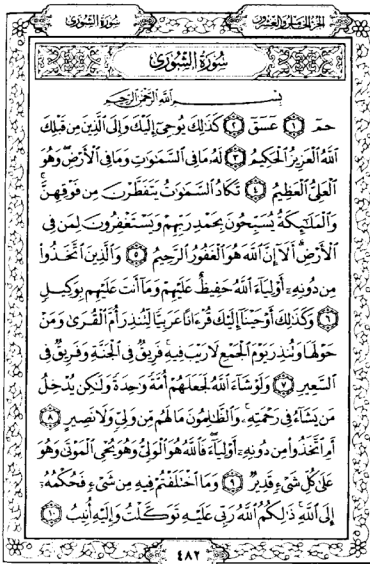 سُورَةُ الشُّورَىٰ الجُزْءُ الخَامِسُ وَالعِشْرُونَ
سُورَةُ الشُّورَىٰ
بِسْمِ اللَّهِ الرَّحْمَٰنِ الرَّحِيمِ
حمٓ ١ عٓسٓقٓ ٢ كَذَٰلِكَ يُوحِىٓ إِلَيْكَ وَإِلَى ٱلَّذِينَ مِن قَبْلِكَ
ٱللَّهُ ٱلْعَزِيزُ ٱلْحَكِيمُ ٣ لَهُۥ مَا فِى ٱلسَّمَٰوَٰتِ وَمَا فِى ٱلْأَرْضِ ۖ وَهُوَ
ٱلْعَلِىُّ ٱلْعَظِيمُ ٤ تَكَادُ ٱلسَّمَٰوَٰتُ يَتَفَطَّرْنَ مِن فَوْقِهِنَّ ۚ
وَٱلْمَلَٰٓئِكَةُ يُسَبِّحُونَ بِحَمْدِ رَبِّهِمْ وَيَسْتَغْفِرُونَ لِمَن فِى
ٱلْأَرْضِ ۗ أَلَآ إِنَّ ٱللَّهَ هُوَ ٱلْغَفُورُ ٱلرَّحِيمُ ٥ وَٱلَّذِينَ ٱتَّخَذُوا۟
مِن دُونِهِۦٓ أَوْلِيَآءَ ٱللَّهُ حَفِيظٌ عَلَيْهِمْ وَمَآ أَنتَ عَلَيْهِم بِوَكِيلٍ
٦ وَكَذَٰلِكَ أَوْحَيْنَآ إِلَيْكَ قُرْءَانًا عَرَبِيًّا لِّتُنذِرَ أُمَّ ٱلْقُرَىٰ وَمَنْ
حَوْلَهَا وَتُنذِرَ يَوْمَ ٱلْجَمْعِ لَا رَيْبَ فِيهِ ۚ فَرِيقٌ فِى ٱلْجَنَّةِ وَفَرِيقٌ فِى
ٱلسَّعِيرِ ٧ وَلَوْ شَآءَ ٱللَّهُ لَجَعَلَهُمْ أُمَّةً وَٰحِدَةً وَلَٰكِن يُدْخِلُ
مَن يَشَآءُ فِى رَحْمَتِهِۦ ۚ وَٱلظَّٰلِمُونَ مَا لَهُم مِّن وَلِىٍّ وَلَا نَصِيرٍ ٨
أَمِ ٱتَّخَذُوا۟ مِن دُونِهِۦٓ أَوْلِيَآءَ ۖ فَٱللَّهُ هُوَ ٱلْوَلِىُّ وَهُوَ يُحْىِ ٱلْمَوْتَىٰ وَهُوَ
عَلَىٰ كُلِّ شَىْءٍ قَدِيرٌ ٩ وَمَا ٱخْتَلَفْتُمْ فِيهِ مِن شَىْءٍ فَحُكْمُهُۥٓ
إِلَى ٱللَّهِ ۚ ذَٰلِكُمُ ٱللَّهُ رَبِّى عَلَيْهِ تَوَكَّلْتُ وَإِلَيْهِ أُنِيبُ ١٠
٤٨٣